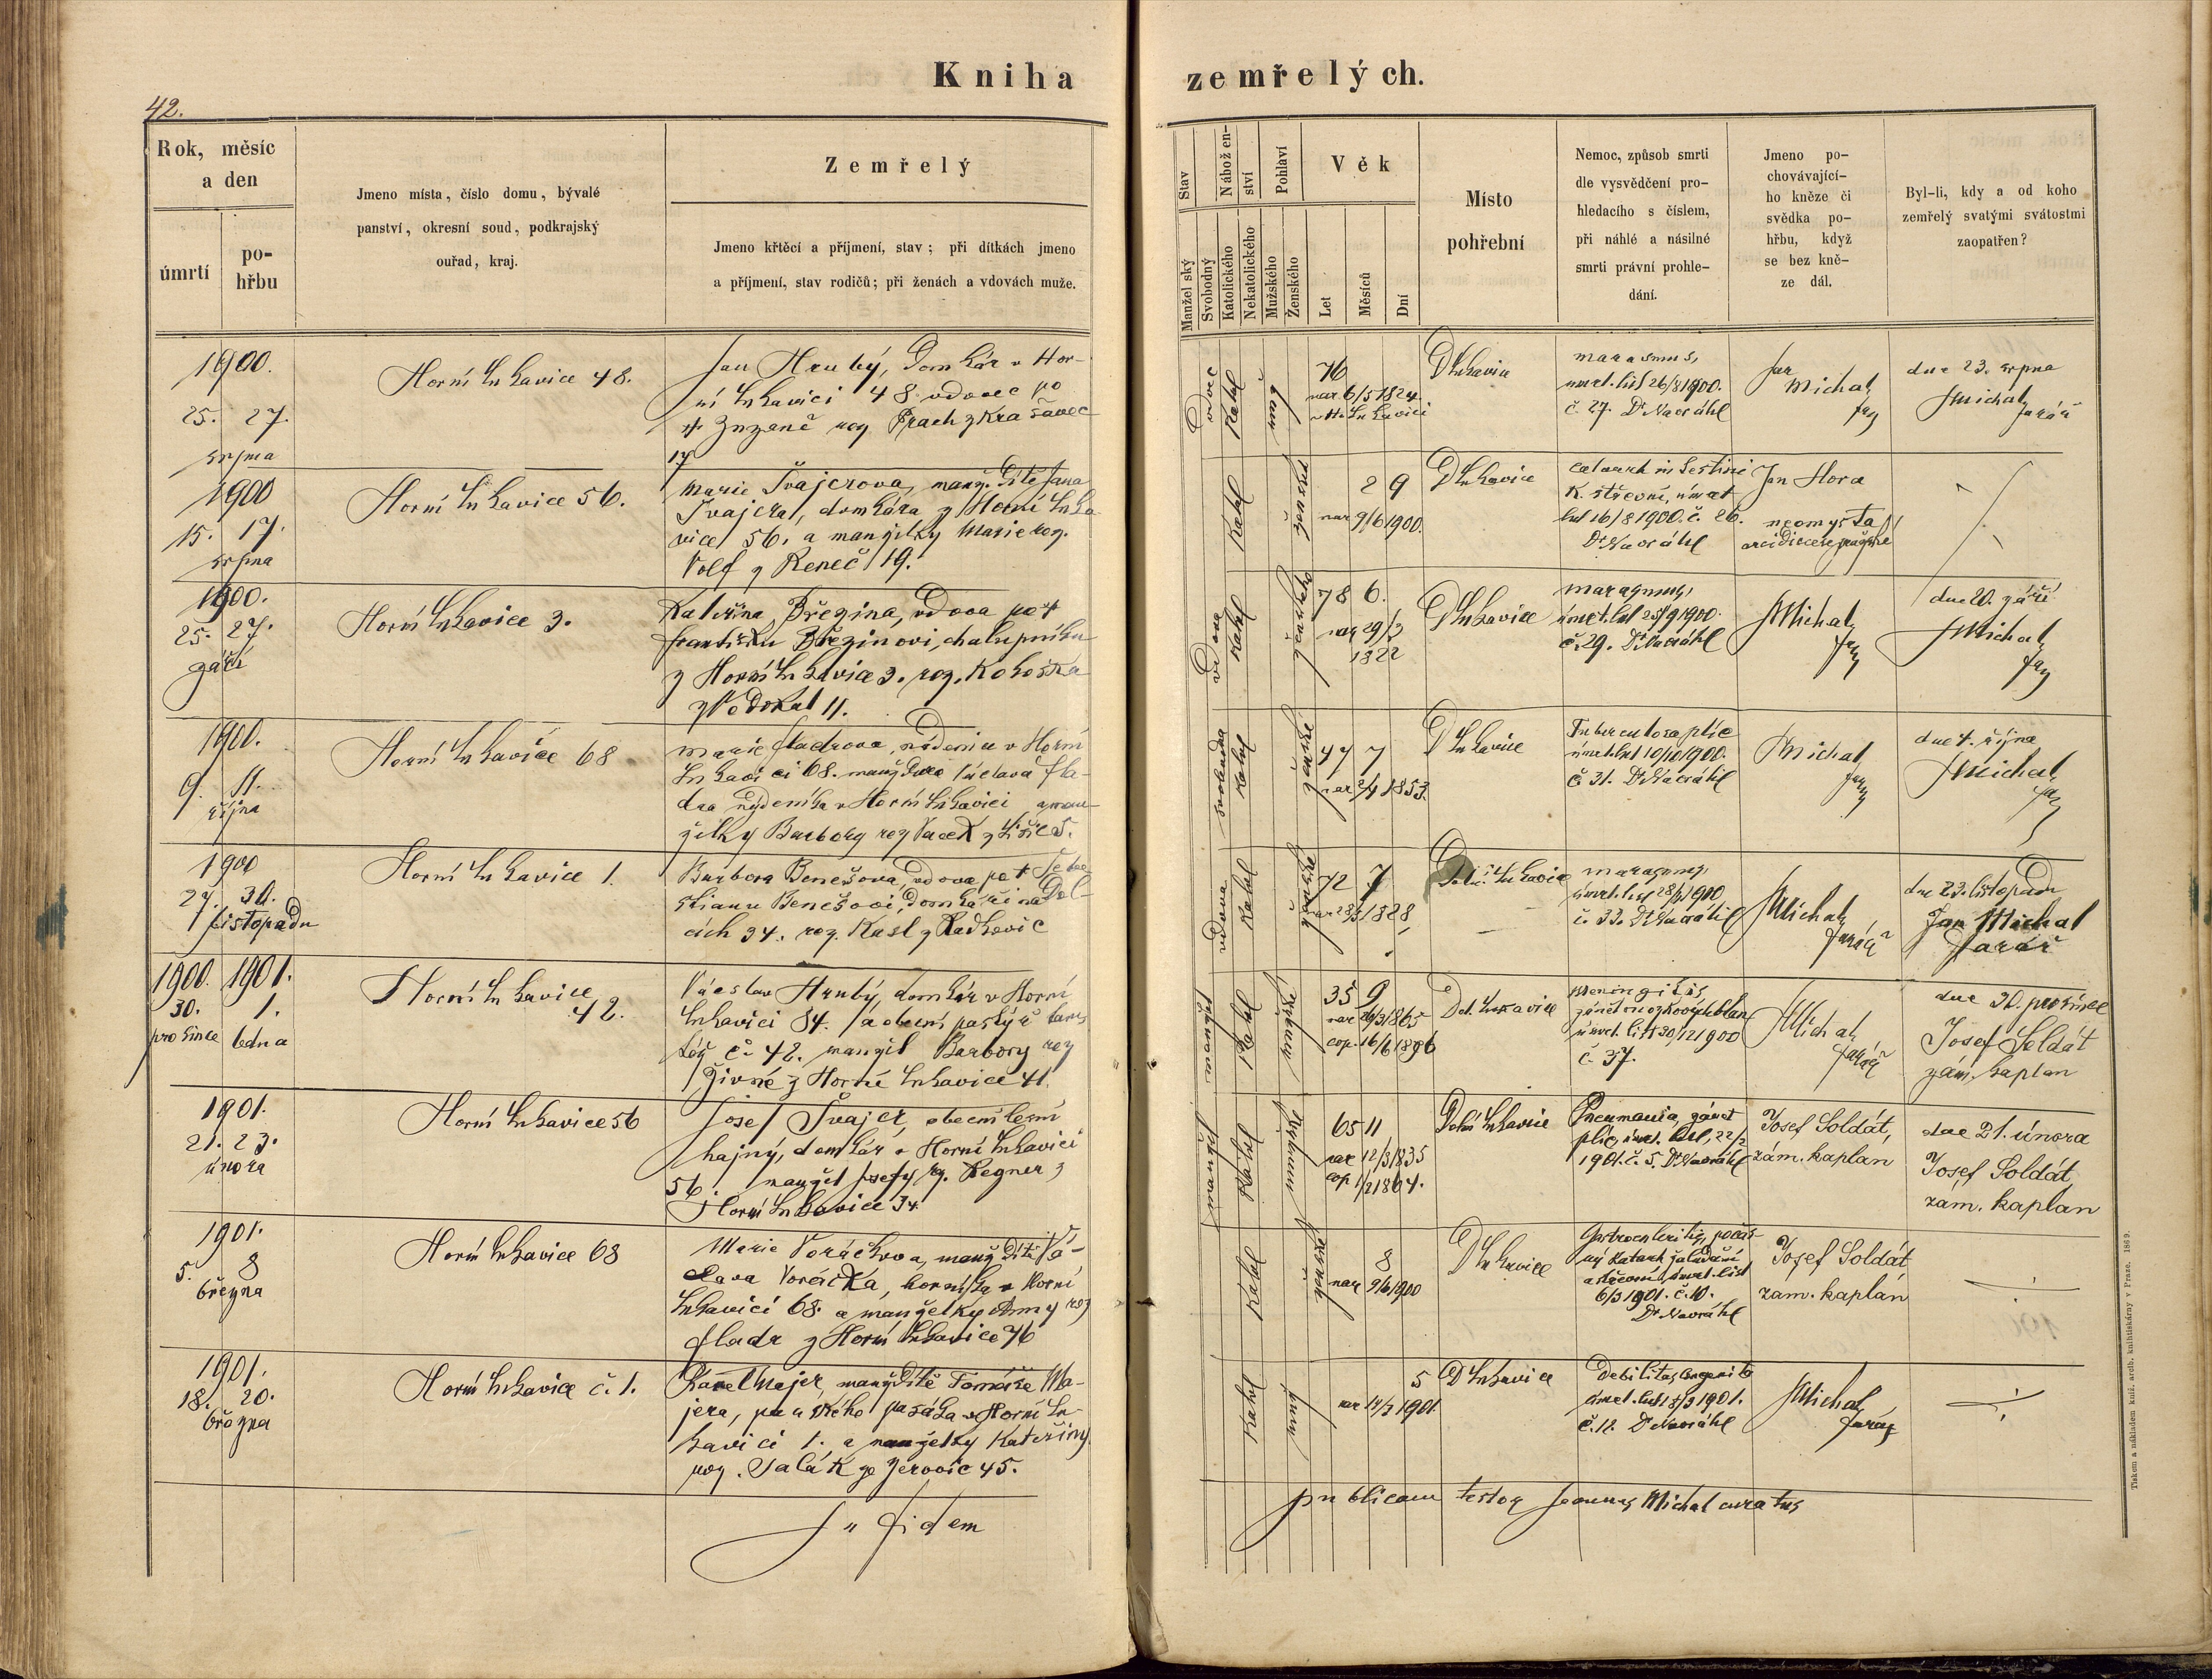 Kniha zemřelých.
42.
Rok, měsíc
a den
úmrtí
po-
hřbu
Jmeno místa, číslo domu, bývalé
panství, okresní soud, podkrajský
ouřad, kraj.
Zemřelý
Jmeno křtěcí a příjmení, stav; při dítkách jmeno
a příjmení, stav rodičů; při ženách a vdovách muže.
Stav
Manželský
Svobodný
Náboženství
Katolického
Nekatolického
Pohlaví
Mužského
Ženského
Věk
Let
Měsíců
Dní
Místo
pohřební
Nemoc, způsob smrti
dle vysvědčení pro-
hledacího s číslem,
při náhlé a násilné
smrti právní prohle-
dání.
Jmeno po-
chovávající-
ho kněze či
svědka po-
hřbu, když
se bez kně-
ze dál.
Byl-li, kdy a od koho
zemřelý svatými svátostmi
zaopatřen?
1900.
25. 27.
srpna
Horní Lukavice 48.
Jan Hrubý, domkár v Hor-
ní Lukavici 48 vdovec po
† Zuzaně roz Prach z Krašovec
17
vdovec
Kathol
muž
76
nar 6/5 1824
v H. Lukavici
D Lukavice
marasmus,
úmrt. list 26/8 1900.
č. 27. Dr Navrátil
Jan
Michal
far
dne 23. srpna
J Michal
farář
1900
15. 17.
srpna
Horní Lukavice 56.
Marie Švajcrova, manž. dítě Jana
Švajcra, domkára z Horní Luka
vice 56. a manželky Marie roz.
Volf z Řeneč 19.
Kathol
ženské
2 9
nar 9/6 1900.
D Lukavice
catarrh intestini
K. střevní, úmrt
list 16/8 1900. č. 26.
Dr Navrátil
Jan Hora
neomysta
arcidiecese pražské
1900.
25. 27.
září
Horní Lukavice 3.
Kateřina Březina, vdova po †
Františku Březinovi, chalupníku
z Horní Lukavice 3. roz. Kohoska
z Vodokrt 11.
vdova
Kathol
ženského
78 6.
nar 29/3
1822
D Lukavice
marasmus,
úmrt. list 25/9 1900.
č. 29. Dr Navrátil
J Michal
far
dne 20. září
J Michal
far
1900.
9. 11.
října
Horní Lukavice 68
Marie Fladrova, nádenice v Horní
Lukavici 68. manž dcera Václava Fla-
dra nádeníka v Horní Lukavici a man-
želky Barbory roz Vacek z Lišic 5.
svobodna
Kathol
ženské
47 7
nar 2/4 1853.
D Lukavice
Tuberculosa plic
úmrt. list 10/10 1900.
č 31. Dr Navrátil
J Michal
far
dne 4. října
J Michal
far
1900
27. 30.
listopadu
Horní Lukavice 1.
Barbora Benešova, vdova po † Šeba
stianu Benešovi, domkáři na Dol-
cích 34. roz. Kasl z Radkovic
vdova
Kathol
ženské
72 7
1828
Dolní Lukavice
marasmus,
úmrt. list 28/11 1900
č. 33. Dr Navrátil
J Michal
farář
dne 23. listopadu
Jan Michal
farář
1900. 1901.
30. 1.
prosince ledna
Horní Lukavice
42.
Václav Hrubý, domkár v Horní
Lukavici 84. a obecní pastýř tam
též č. 42. manžel Barbory roz
Živné z Horní Lukavice 41.
manžel
Kathol
35 9
nar 29/3 1865
cop. 16/6 1896
Dol. Lukavice
meningitis
zánět mozkových blan
úmrt. list 30/12 1900
č. 37.
J Michal
farář
dne 30. prosince
Josef Soldát
zám. kaplan
1901.
21. 23.
února
Horní Lukavice 56
Josef Švajcr, obecní lesní
hajný, domkár v Horní Lukavici
56. manžel Josefy roz. Regner z
Horní Lukavice 34.
manžel
Kathol
65 11
nar 12/3 1835
cop 1864.
Dolní Lukavice
Pneumonia, zánět
plic, úmrt. list, 22/2
1901. č. 5. Dr Navrátil
Josef Soldát,
zám. kaplan
dne 21. února
Josef Soldát,
zam. kaplan
1901.
5. 8
března
Horní Lukavice 68
Marie Voráčkova, manž dítě Vá-
clava Voráčka, horníka v Horní
Lukavici 68. a manželky Anny roz
Fladr z Horní Lukavice 76
Kathol
ženské
8
nar 9/6 1900
D Lukavice
žaludeční
a střevní, úmrt. list
6/3 1901. č. 10.
Dr Navrátil
Josef Soldát
zam. kaplán
1901.
18. 20.
března
Horní Lukavice č. 1.
Karel Majer, manž dítě Tomáše Ma-
jera, panského pasáka v Horní Lu-
kavici 1. a manželky Kateřiny
roz. Salák ze Žerovic 45.
Kathol
muž
5
nar 14/3 1901
D Lukavice
Debilitas congenita
úmrt. list 18/3 1901.
č. 12. Dr Navrátil
J Michal
farář
In fidem
publicam testor Joannes Michal curatus
Tiskem a nákladem kníž. arcib. knihtiskárny v Praze. 1869.